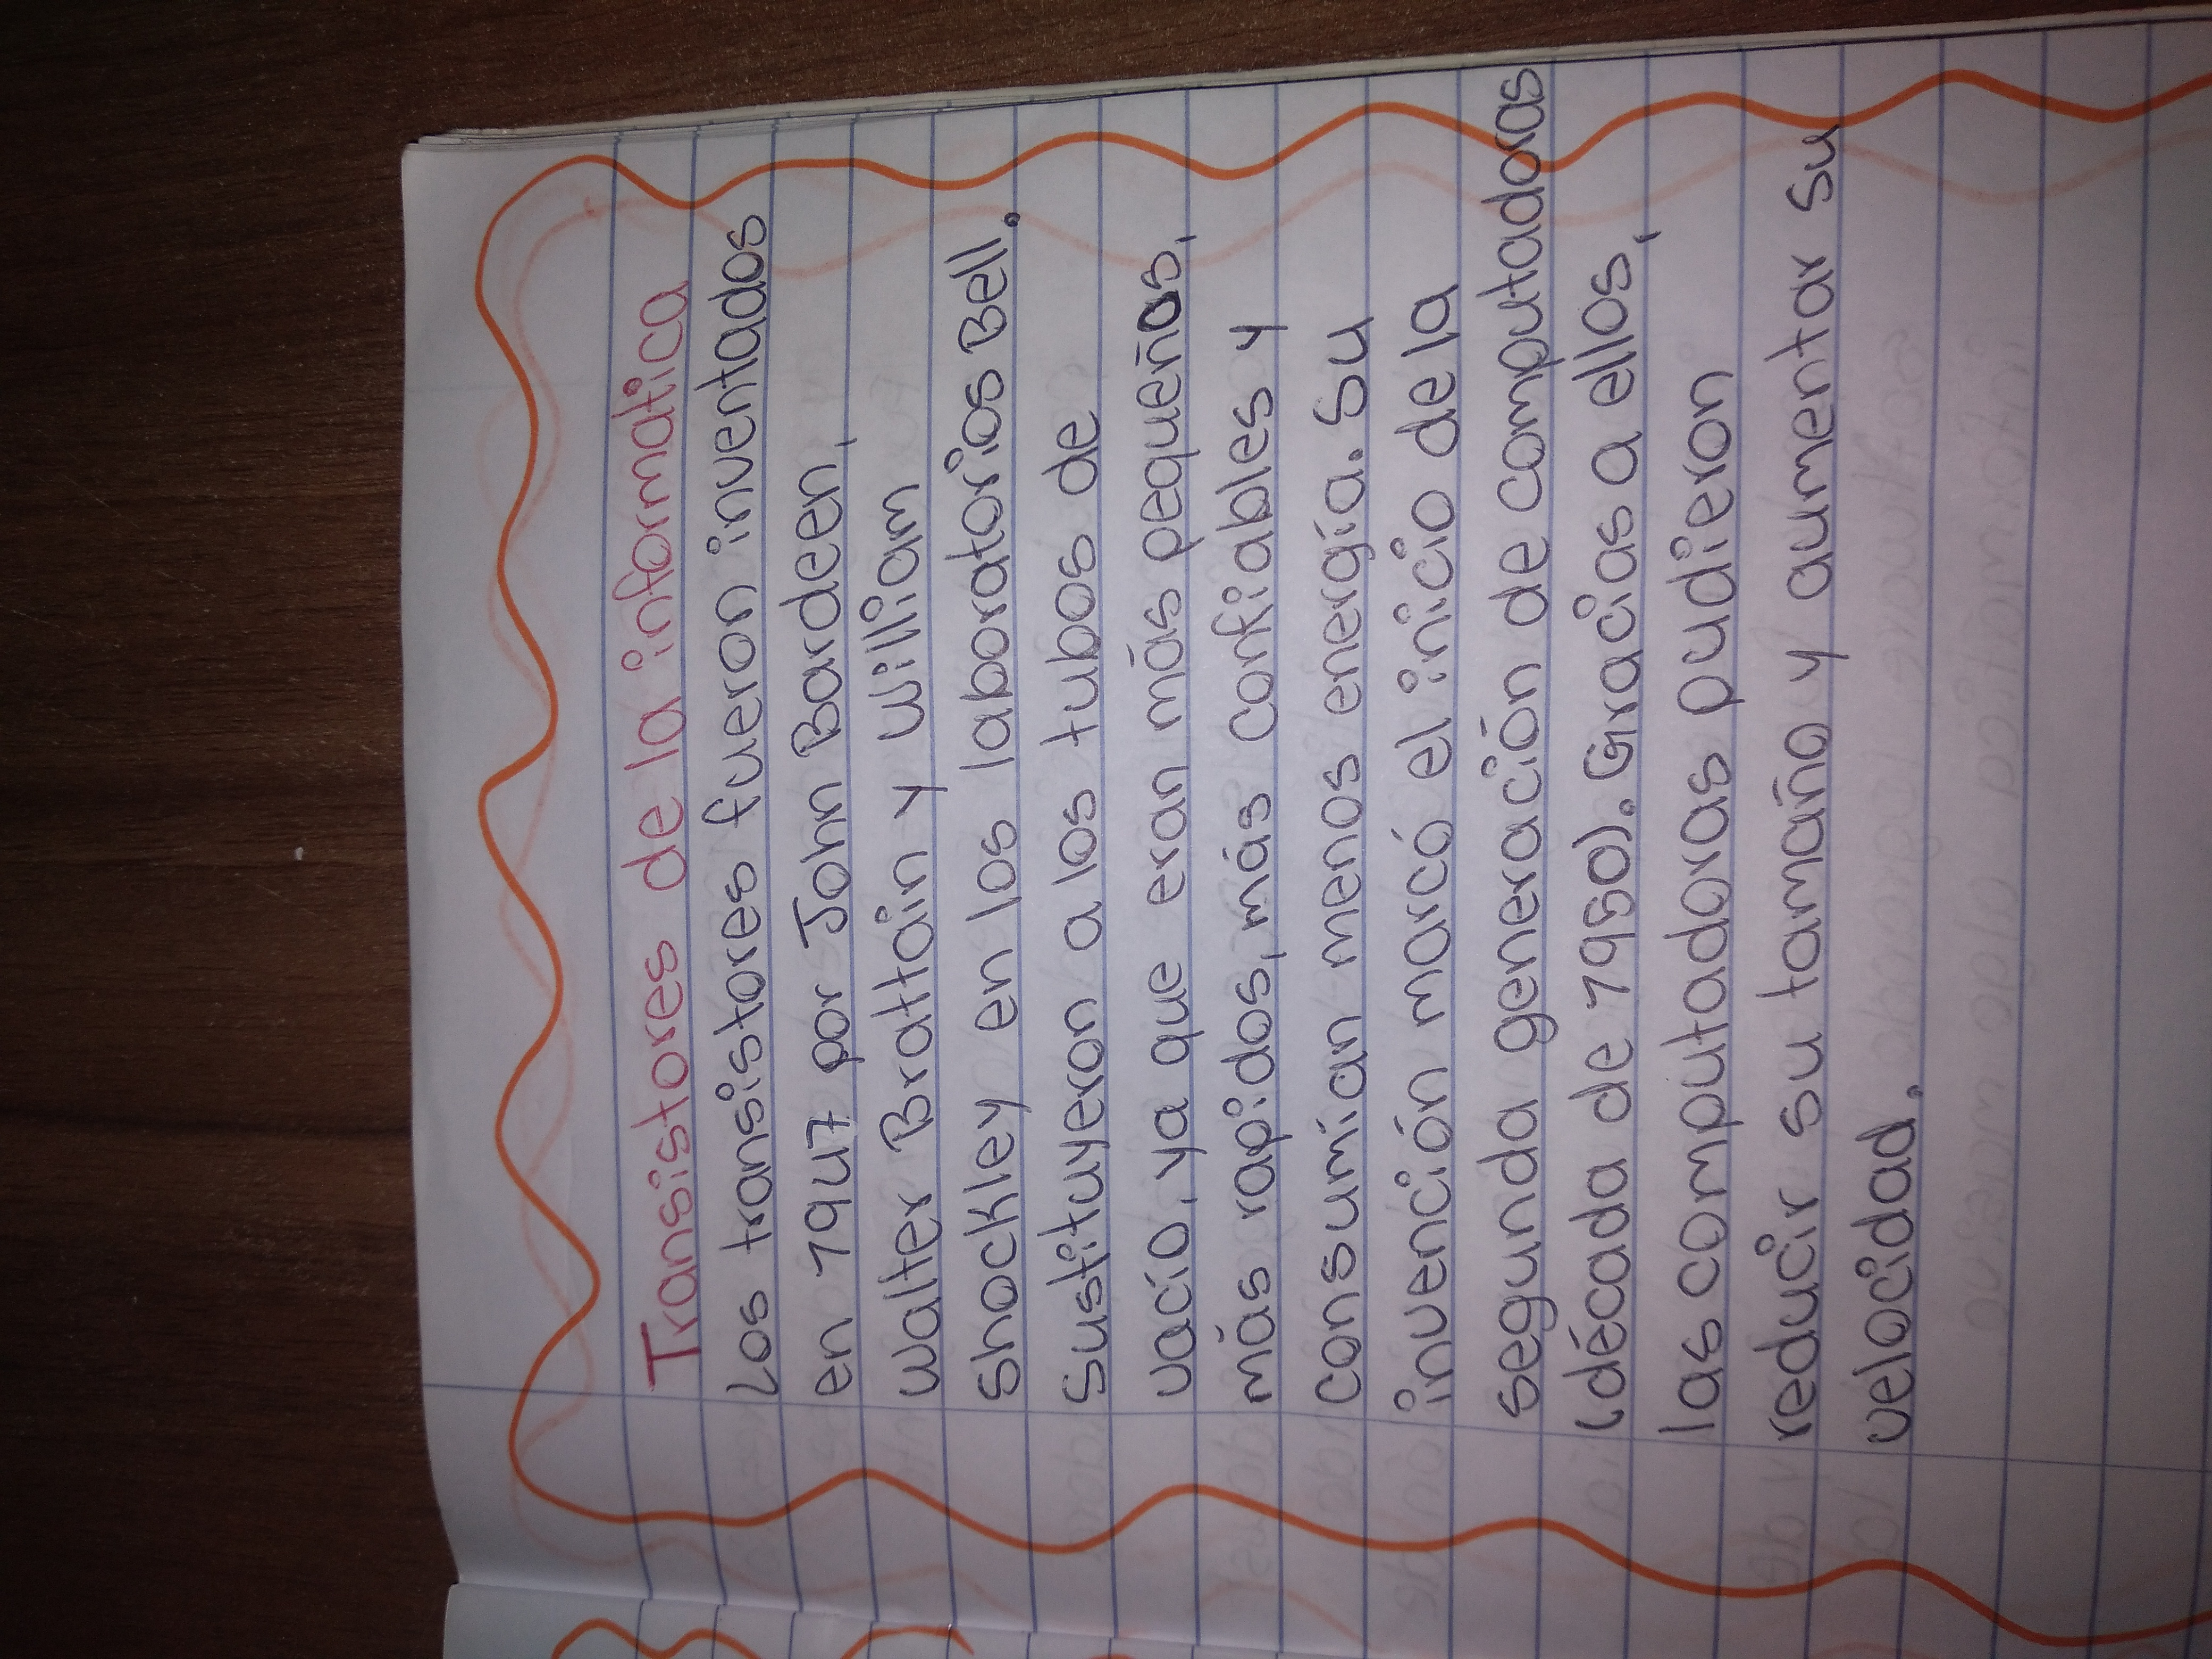 Transistores de la informatica
Los transistores fueron inventados
en 1947 por John Bardeen,
walter Brattain y William
Shockley en los laboratorios Bell.
Sustituyeron a los tubos de
vacío, ya que eran más pequeños,
más rapidos, más confiables y
consumían menos energía. Su
invención marcó el inicio de la
segunda generación de computadoras
(década de 1950). Gracias a ellos,
las computadoras pudieron
reducir su tamaño y aumentar su
velocidad.